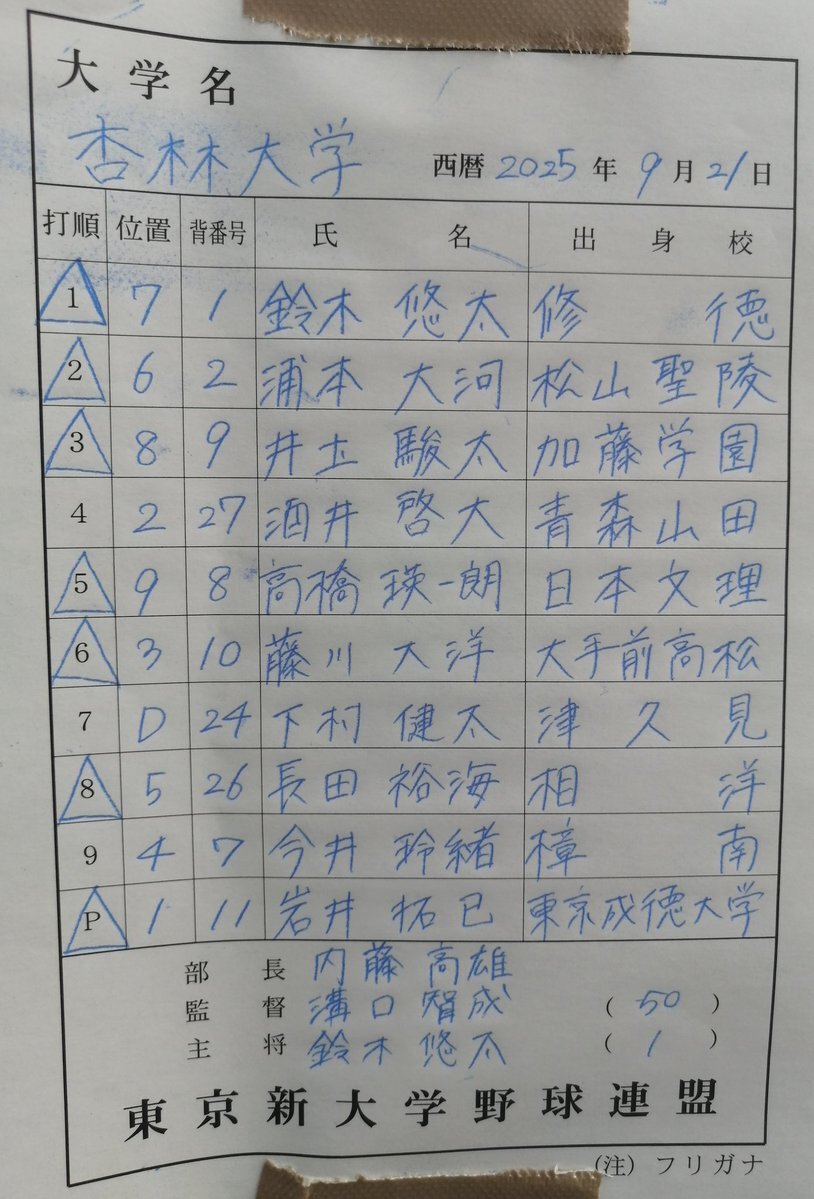 大学名
杏林大学 西暦 2025 年 9 月 21 日
打順 位置 背番号 氏 名 出 身 校
1 7 1 鈴木 悠太 修 徳
2 6 2 浦本 大河 松山聖陵
3 8 9 井土 駿太 加藤学園
4 2 27 酒井 啓大 青森山田
5 9 8 高橋 瑛一朗 日本文理
6 3 10 藤川 大洋 大手前高松
7 D 24 下村 健太 津久見
8 5 26 長田 裕海 相 洋
9 4 7 今井 玲緒 樟 南
P 1 11 岩井 拓巳 東京成徳大学
部 長 内藤 高雄
監 督 溝口 智成 ( 50 )
主 将 鈴木 悠太 ( 1 )
東京新大学野球連盟
(注) フリガナ